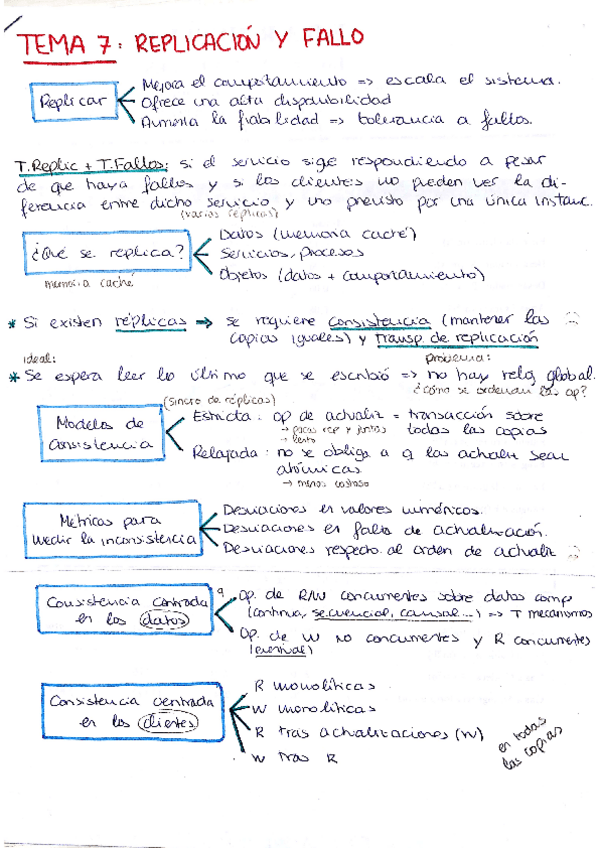 TEMA 7: REPLICACIÓN Y FALLO
Replicar
Mejora el comportamiento => escala el sistema.
Ofrece una alta disponibilidad
Aumenta la fiabilidad => tolerancia a fallos.
T.Replic + T.Fallos: si el servicio sige respondiendo a pesar
de que haya fallos y si los clientes no pueden ver la di-
ferencia entre dicho servicio y uno previsto por una única instanc.
(varias réplicas)
¿Qué se replica?
Datos (memoria caché)
Servicios, procesos
Objetos (datos + comportamiento)
memoria caché
* Si existen réplicas → se requiere consistencia (mantener las
copias iguales) y transp. de replicación
ideal:
problema:
* Se espera leer lo último que se escribió => no hay reloj global.
¿cómo se ordenan las op?
(sincro de réplicas)
Modelos de
Consistencia
Estricta: op de actualiz = transacción sobre
todas las copias
→ pocas rep y juntas
→ lento
Relajada: no se obliga a q las actualiz sean
atómicas
→ menos costoso
Métricas para
medir la inconsistencia
Desviaciones en valores numéricos.
Desviaciones en falta de actualización.
Desviaciones respecto al orden de actualiz
Consistencia centrada
en los datos
Op. de R/W concurrentes sobre datos comp
(continua, secuencial, causal...) => T mecanismos
Op. de W no concurrentes y R concurrentes
(eventual)
Consistencia centrada
en los clientes
R monolíticas
W monolíticas
R tras actualizaciones (W)
W tras R
en todas
las copias